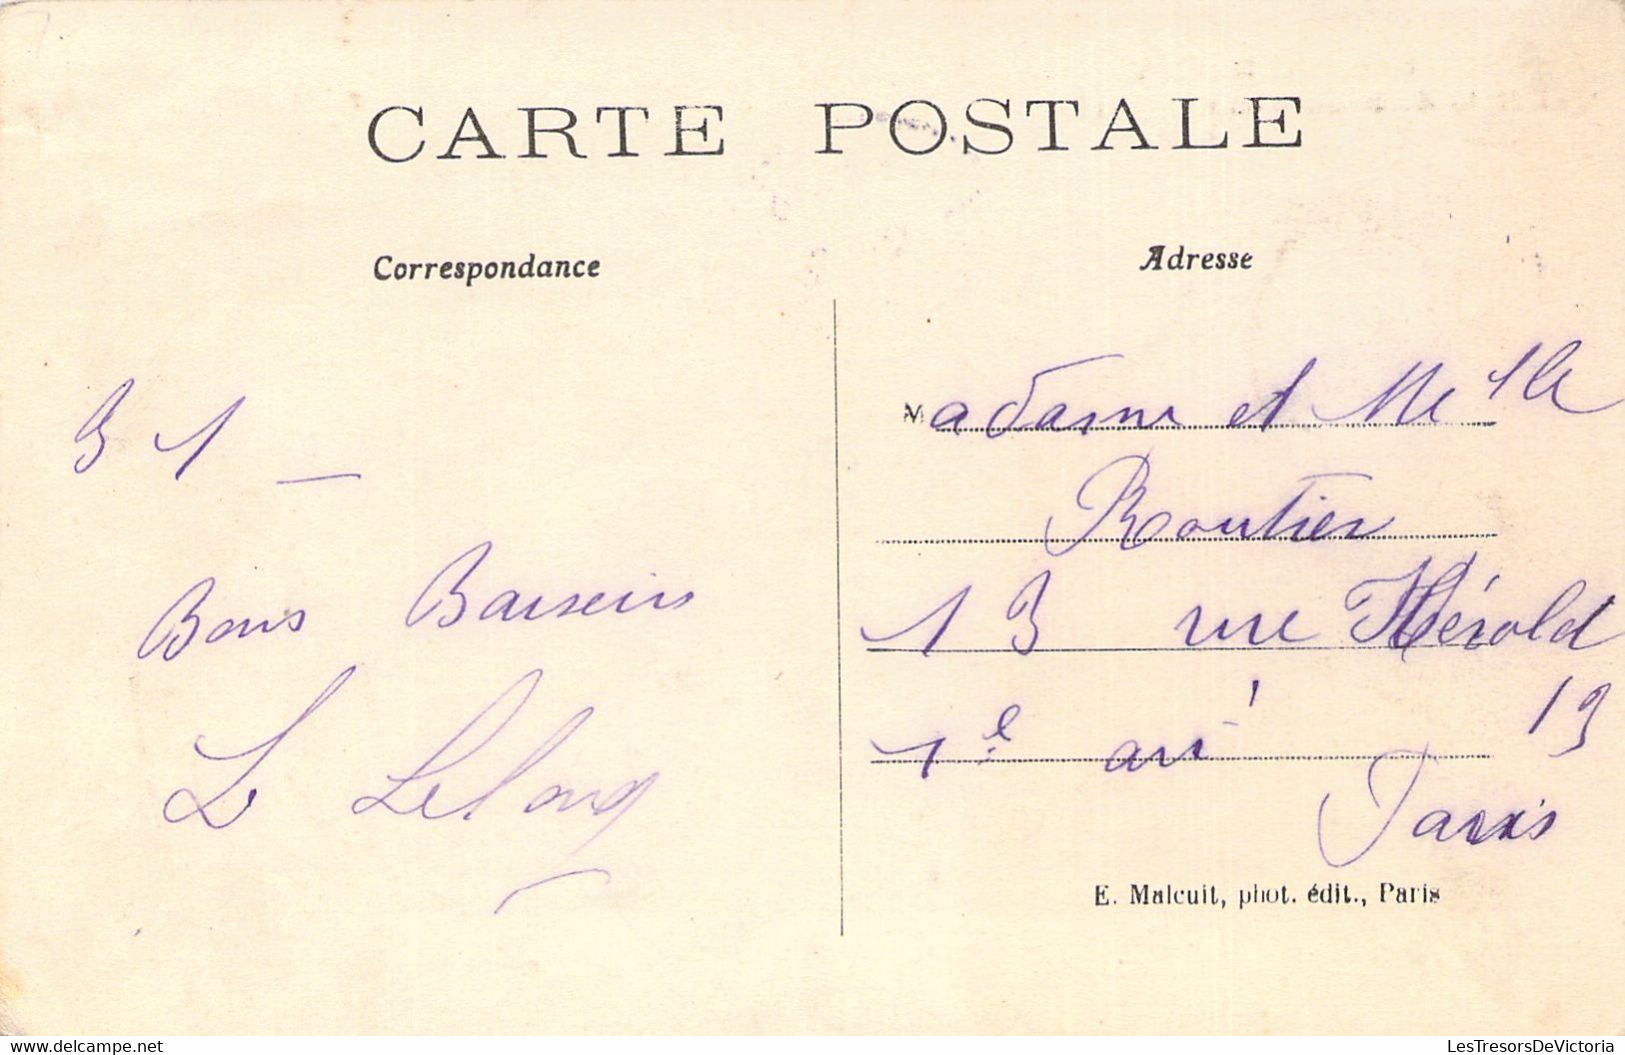 CARTE POSTALE
Correspondance
31 —
Bons Baisers
L Lelong
Adresse
Madame et Melle
Routier
13 rue Hérold
1e arrt 13
Paris
E. Malcuit, phot. édit., Paris
www.delcampe.net
LesTresorsDeVictoria